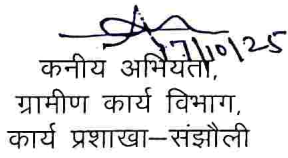 17/10/25
कनीय अभियंता,
ग्रामीण कार्य विभाग,
कार्य प्रशाखा–संझौली